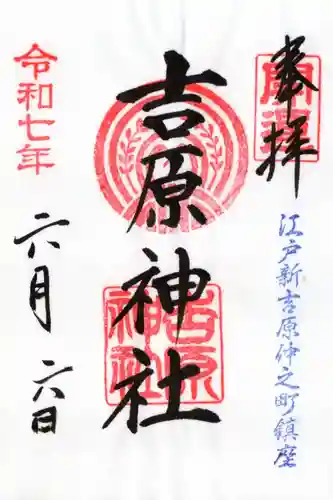 奉拝
開運
江戸新吉原仲之町鎮座
吉原神社
吉原神社
令和七年
六月六日